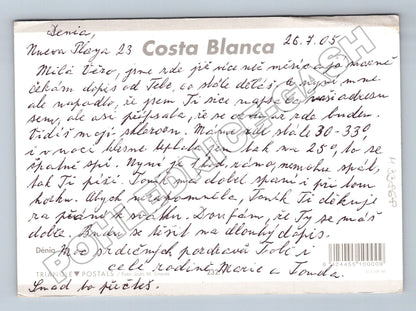 Denia,
Nueva Playa 23 Costa Blanca 26.7.05
Milá Věro, jsme zde již více než měsíc a po marně
čekám dopis od Tebe, co stále děláš? Nyní mne
ale napadlo, že jsem Ti sice napsala naši adresu
sem, ale asi připsala, že se od az zde budem.
Vidíš moji sklerosu. Máme zde stále 30-33°
i v noci klesne teplota jen tak na 25°, to se
špatně spí. Nyní je 7 hod. ráno, nemohu spát,
tak Ti píši. Tonda má dobré spaní i při tom
horku. Abych nezapomněla, Toník Ti děkuje
za přání k svátku. Doufám, že Ty se máš
dobře. Budu se těšit na dlouhý dopis.
Dénia Moc srdečných pozdravů Tobě i
celé rodině Marie a Tonda.
Snad to přečteš.
TRIANGLE POSTALS
POHLEDNICE-GASH